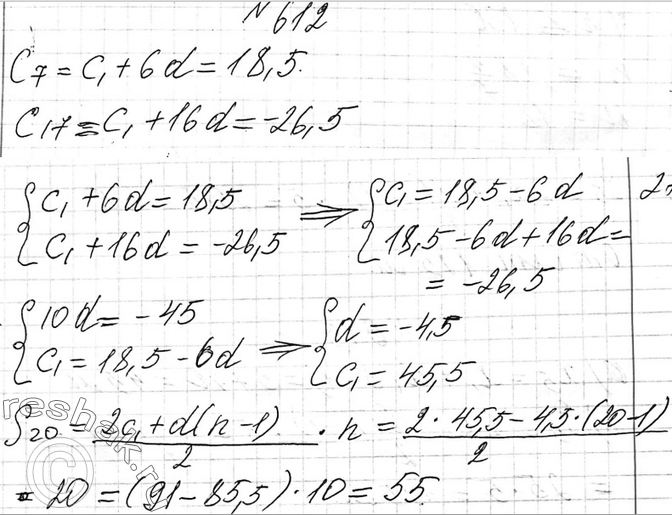 №612
C₇ = C₁ + 6d = 18,5.
C₁₇ = C₁ + 16d = -26,5
{ C₁ + 6d = 18,5 ⇒ { C₁ = 18,5 - 6d
{ C₁ + 16d = -26,5 { 18,5 - 6d + 16d =
= -26,5
{ 10d = -45 ⇒ { d = -4,5
{ C₁ = 18,5 - 6d { C₁ = 45,5
S₂₀ = (2C₁ + d(n-1))/2 · n = (2 · 45,5 - 4,5 · (20-1))/2
· 20 = (91 - 85,5) · 10 = 55
reshak.ru
©